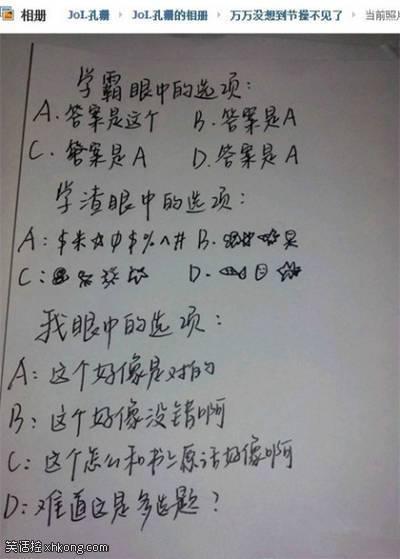 相册 JoL孔疆 › JoL孔疆的相册 › 万万没想到节操不见了 › 当前照片
学霸眼中的选项:
A.答案是这个 B.答案是A
C.答案是A D.答案是A
学渣眼中的选项:
A:$米☆0$%^# B.
C: D.
我眼中的选项:
A:这个好像是对的
B:这个好像没错啊
C:这个怎么和书上原话好像啊
D:难道这是多选题?
笑话控xhkong.com